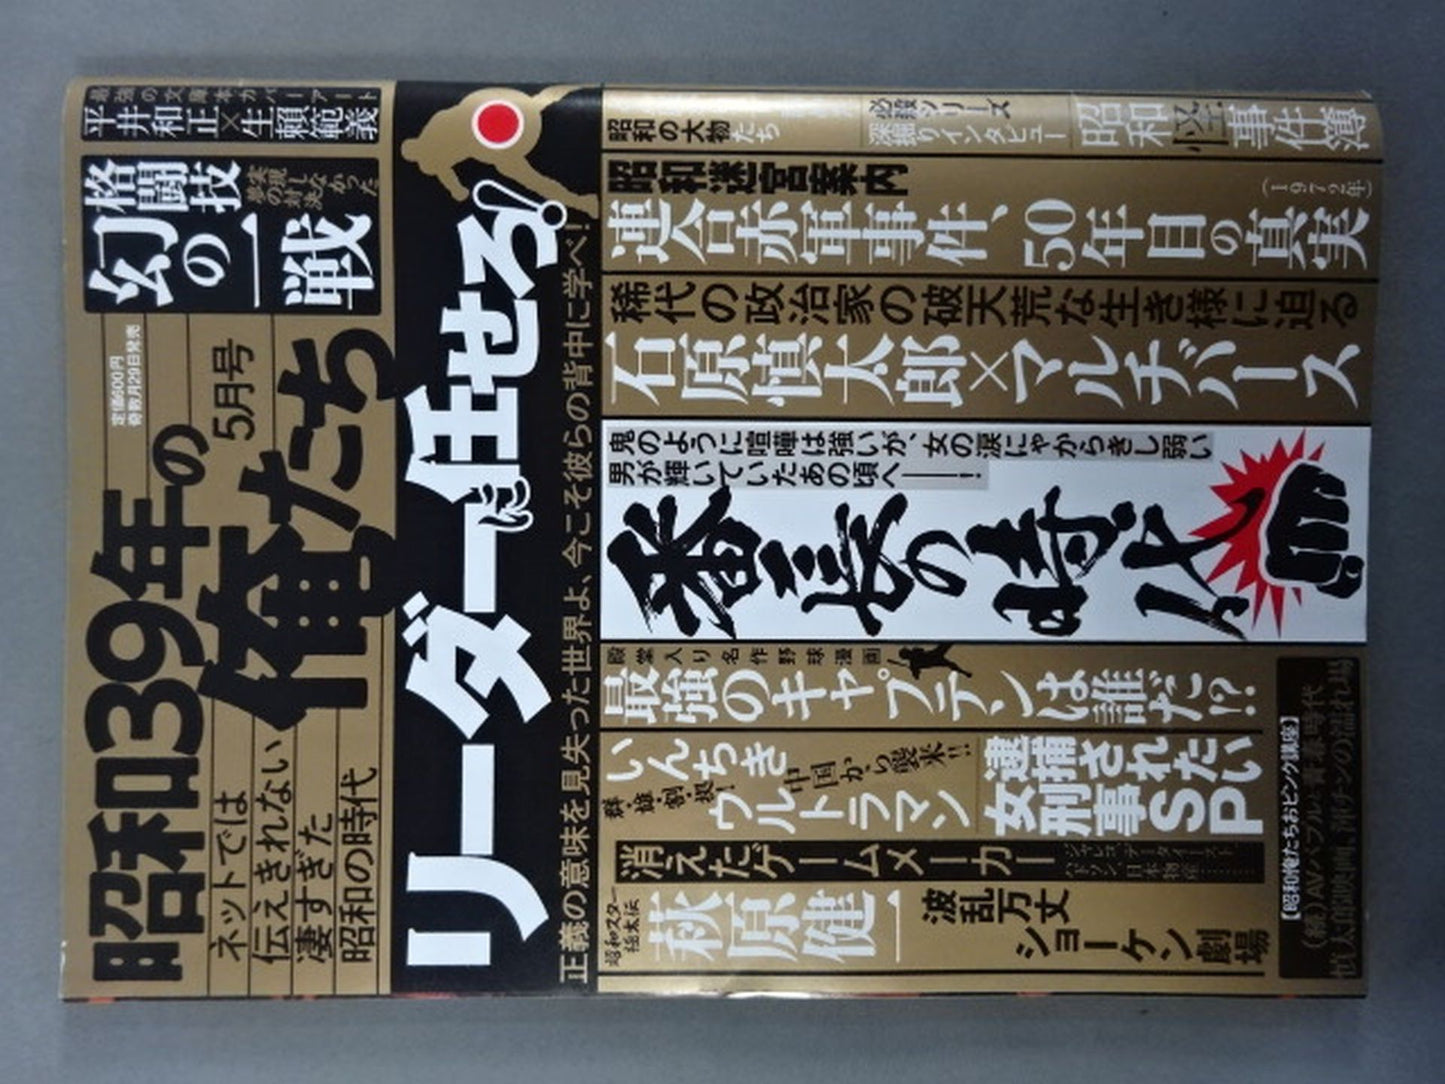 最強の文庫本カバーアート
平井和正×生頼範義
格闘技
幻の一戦
実現しなかった
夢の対決
定価600円
奇数月29日発売
5月号
昭和39年の
俺たち
ネットでは
伝えきれない
凄すぎた
昭和の時代
リーダーに任せろ!
正義の意味を見失った世界よ、今こそ彼らの背中に学べ!
昭和の大物たち
必殺シリーズ
深掘りインタビュー
昭和怪事件簿
昭和迷宮案内
連合赤軍事件、50年目の真実
(1972年)
稀代の政治家の破天荒な生き様に迫る
石原慎太郎×マルチバース
鬼のように喧嘩は強いが、女の涙にやからきし弱い
男が輝いていたあの頃へ――!
番長の時代
殿堂入り名作野球漫画
最強のキャプテンは誰だ!?
いんちき
群・雄・割・拠!
ウルトラマン
中国から襲来!!
逮捕されたい
女刑事SP
消えたゲームメーカー
ジャレコ、データイースト、
ハドソン、日本物産………
昭和スター
極太伝
萩原健一
波乱万丈
ショーケン劇場
【昭和俺たちおピンク講座】
(続)AVバブル・青春時代
慎太郎映画、裕チンの濡れ場